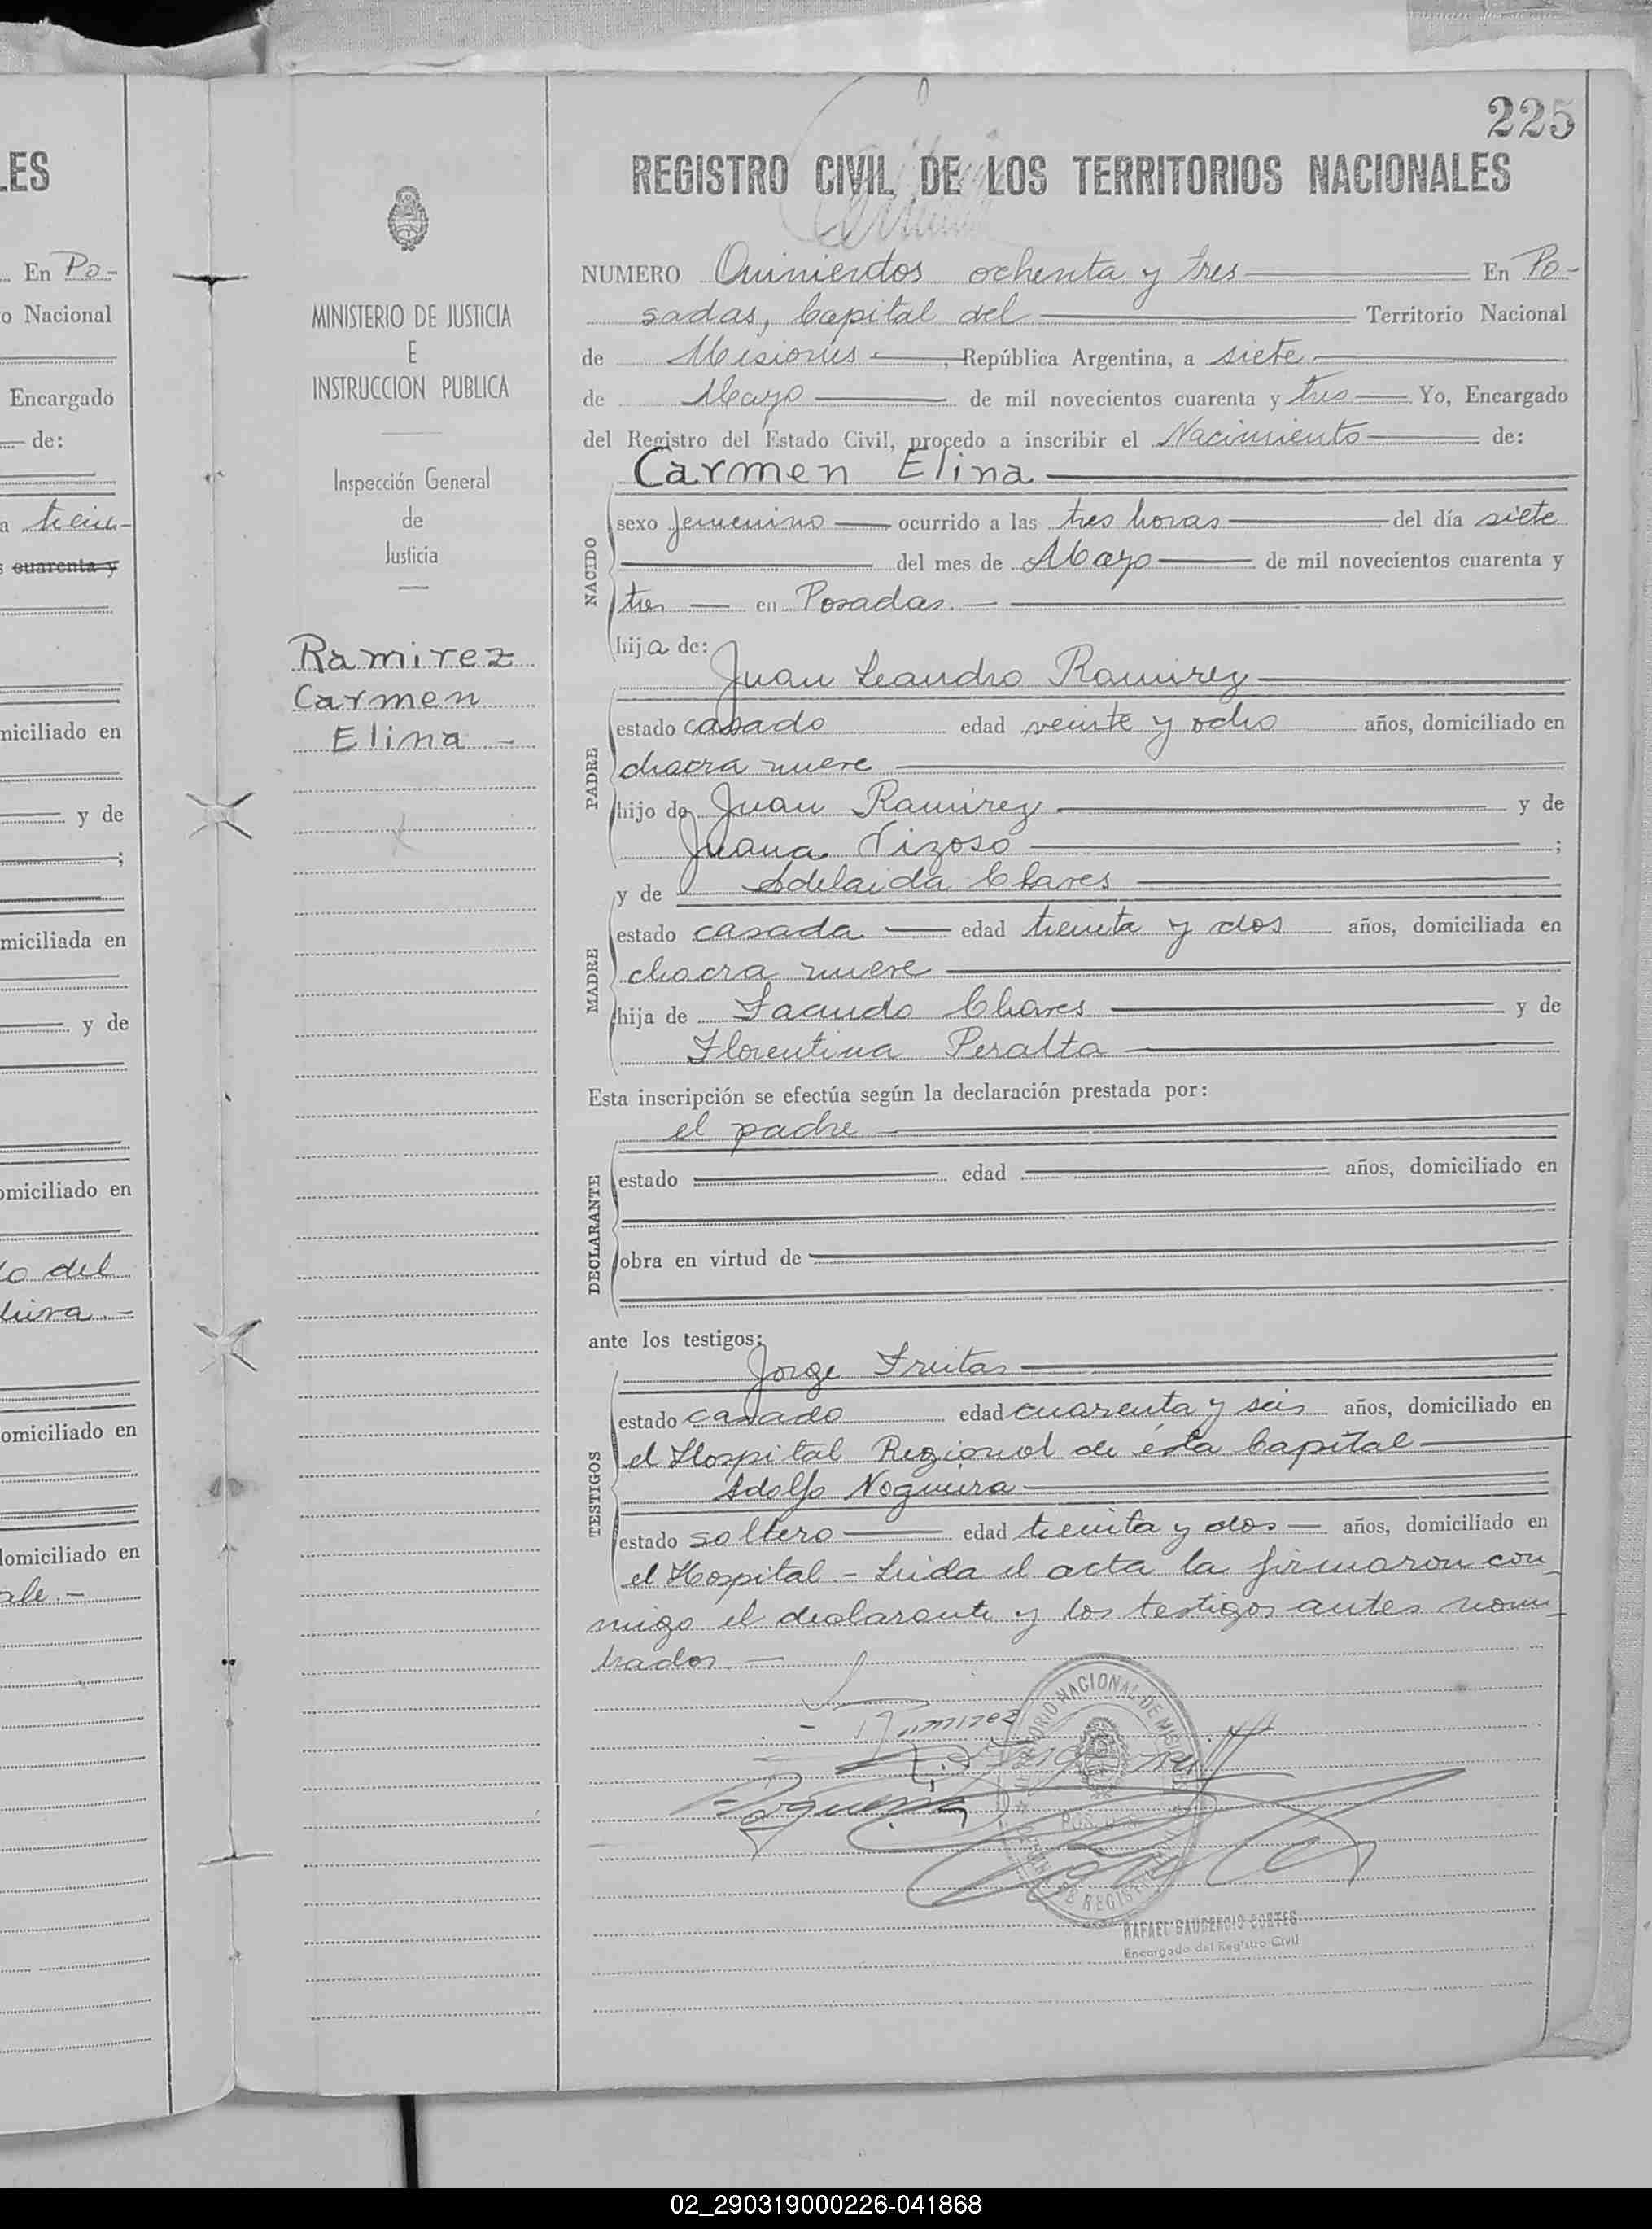 LES
En Po-
o Nacional
Encargado
de:
a trein-
s cuarenta y
niciliado en
y de
;
miciliada en
y de
omiciliado en
lo del
omiciliado en
lomiciliado en
ale.-
MINISTERIO DE JUSTICIA
E
INSTRUCCION PUBLICA
Inspección General
de
Justicia
Ramirez
Carmen
Elina -
225
REGISTRO CIVIL DE LOS TERRITORIOS NACIONALES
NUMERO Quinientos ochenta y tres En Po-
sadas, Capital del Territorio Nacional
de Misiones, República Argentina, a siete
de Mayo de mil novecientos cuarenta y tres Yo, Encargado
del Registro del Estado Civil, procedo a inscribir el Nacimiento de:
Carmen Elina
NACIDO
sexo femenino ocurrido a las tres horas del día siete
del mes de Mayo de mil novecientos cuarenta y
tres en Posadas.
hija de:
Juan Leandro Ramirez
PADRE
estado casado edad veinte y ocho años, domiciliado en
chacra nueve
hijo de Juan Ramirez y de
Juana Vizoso ;
y de Adelaida Chaves
MADRE
estado casada edad treinta y dos años, domiciliada en
chacra nueve
hija de Facundo Chaves y de
Florentina Peralta
Esta inscripción se efectúa según la declaración prestada por:
el padre
DECLARANTE
estado edad años, domiciliado en
obra en virtud de
ante los testigos:
Jorge Fruitas
TESTIGOS
estado casado edad cuarenta y seis años, domiciliado en
el Hospital Regional de ésta Capital
Adolfo Nogueira
estado soltero edad treinta y dos años, domiciliado en
el Hospital.- Leida el acta la firmaron con
migo el declarante y los testigos antes nom
brados.-
Ramirez
TERRITORIO NACIONAL DE MISIONES
POSADAS
RAFAEL GAUDENCIO CORTES
Encargado del Registro Civil
02_290319000226-041868